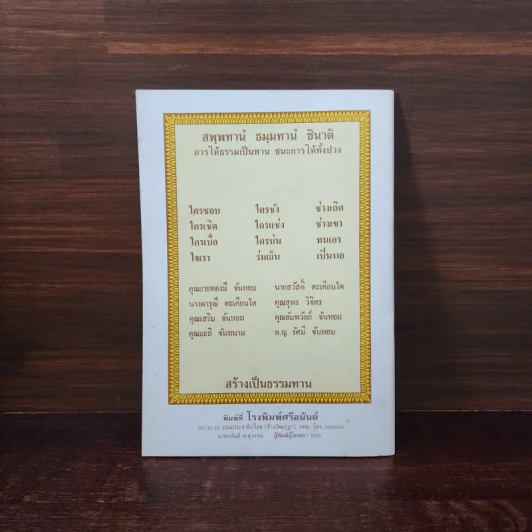 สพฺพทานํ ธมฺมทานํ ชินาติ
การให้ธรรมเป็นทาน ชนะการให้ทั้งปวง
ใครชอบ ใครชัง ช่างเถิด
ใครเชิด ใครแช่ง ช่างเขา
ใครเบื่อ ใครบ่น ทนเอา
ใจเรา ร่มเย็น เป็นพอ
คุณยายทองมี จันหอม นายสวัสดิ์ ตะเคียนโต
นางดารุณี ตะเคียนโต คุณสุพร วิจิตร
คุณเสริม จันหอม คุณอัมพวัลย์ จันหอม
คุณมะลิ จันหนาม ด.ญ. รัศมี จันหอม
สร้างเป็นธรรมทาน
พิมพ์ที่ โรงพิมพ์ศรีอนันต์
ถนนประชาธิปไตย กทม. โทร.